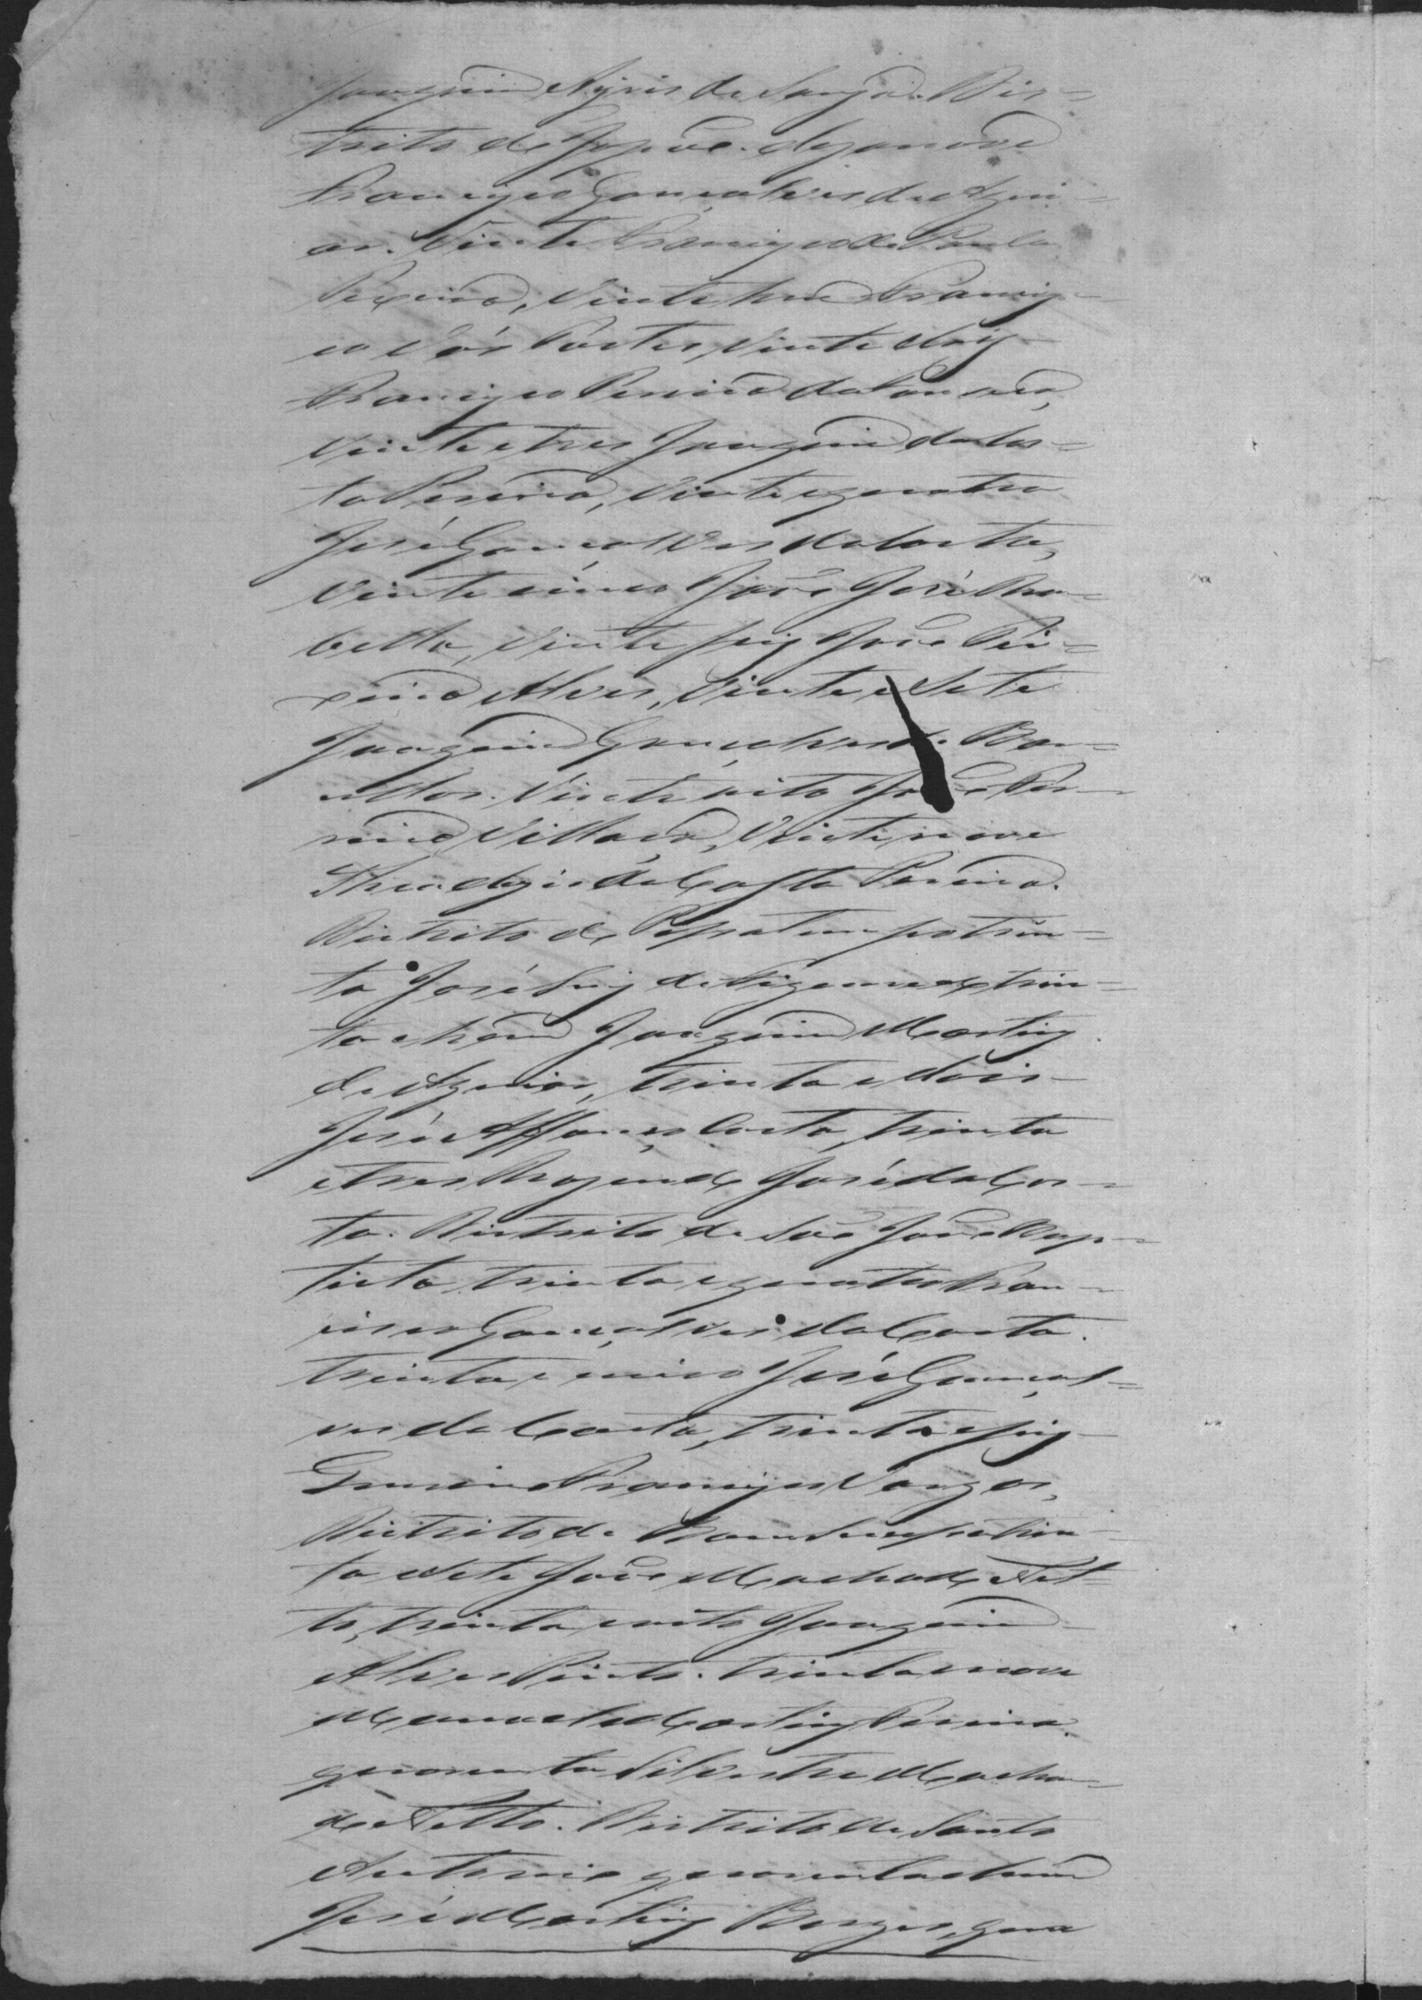 Joaquim de Souza. Dis-
tricto de dezanove
Francisco Gonçalves de Agui-
ar. Vinte Francisco de Paula
Vinte hum Francis-
co Vás Vinte dois
Francisco Pereira da Fonseca,
Vinte e tres Joaquim da Cos-
ta Pereira, Vinte e quatro
José Gonçalves da Costa,
Vinte cinco João José
Vinte seis João Tei-
xeira Alves, Vinte e Sete
Joaquim Gonçalves de Bar-
cellos. Vinte oito José Per-
reira Villaça, Vinte nove
da Costa Pereira.
Districto de trin-
ta José Luiz de trin-
ta e hum Joaquim Martins
de Aguiar, trinta e dois
José Affonso Costa, trinta
e tres Rozendo José da Cos-
ta. Districto de São João Bap-
tista, trinta e quatro Fran-
cisco Gonçalves da Costa.
trinta e cinco José Gonçal-
ves da Costa, trinta e seis
Francisco Vargas,
Districto de trin-
ta e Sete João Machado Net-
to, trinta e oito Joaquim
Alves Pinto. trinta e nove
Manoel Martins Pereira.
quarenta Silvestre Macha-
do Netto. Districto de Santo
Antonio quarenta e hum
José Martins Borges, qua